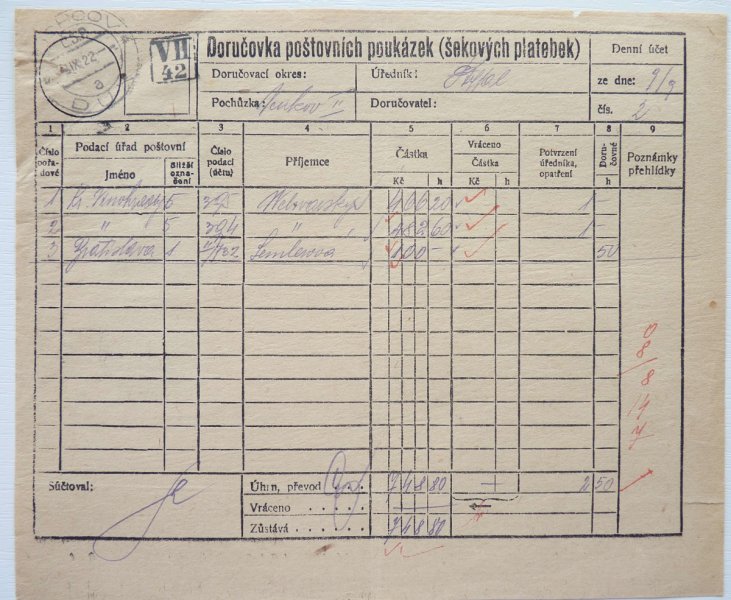 VII
42
ČSP
IX.22
a
Doručovka poštovních poukázek (šekových platebek)
Doručovací okres:
Úředník:
Pochůzka: Venkov II
Doručovatel:
Denní účet
ze dne: 9/9
čís. 2
1 2 3 4 5 6 7 8 9
Číslo pořadové
Podací úřad poštovní
Jméno
Bližší označení
Číslo podací (účtu)
Příjemce
Částka
Kč h
Vráceno
Částka
Kč h
Potvrzení úředníka, opatření
Doručovné
h
Poznámky přehlídky
1 Kr. Vinohrady 5 1 –
2 " 5 394 " 482 60 1 –
3 Bratislava 1 Semlerová 100 – 50
0
8
/8
14
Súčtoval:
Úhrn, převod 748 80 2 50
Vráceno . . . . .
Zůstává . . . . . . 748 80